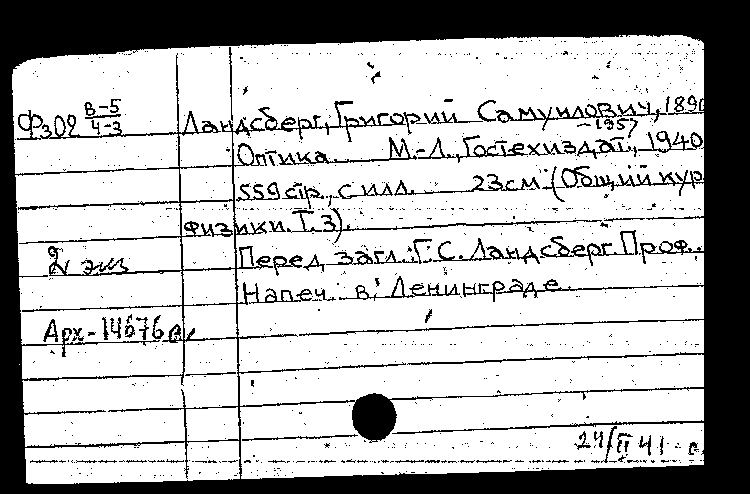 Фз02 В-5 4-3 Ландсберг, Григорий Самуилович, 1890
-1957
Оптика. М.-Л., Гостехиздат., 1940
559 стр., с илл. 23см (Общий кур
физики. Т. 3).
2 экз Перед загл.: Г. С. Ландсберг. Проф.
Напеч. в Ленинграде.
Арх-14676а
24/II 41